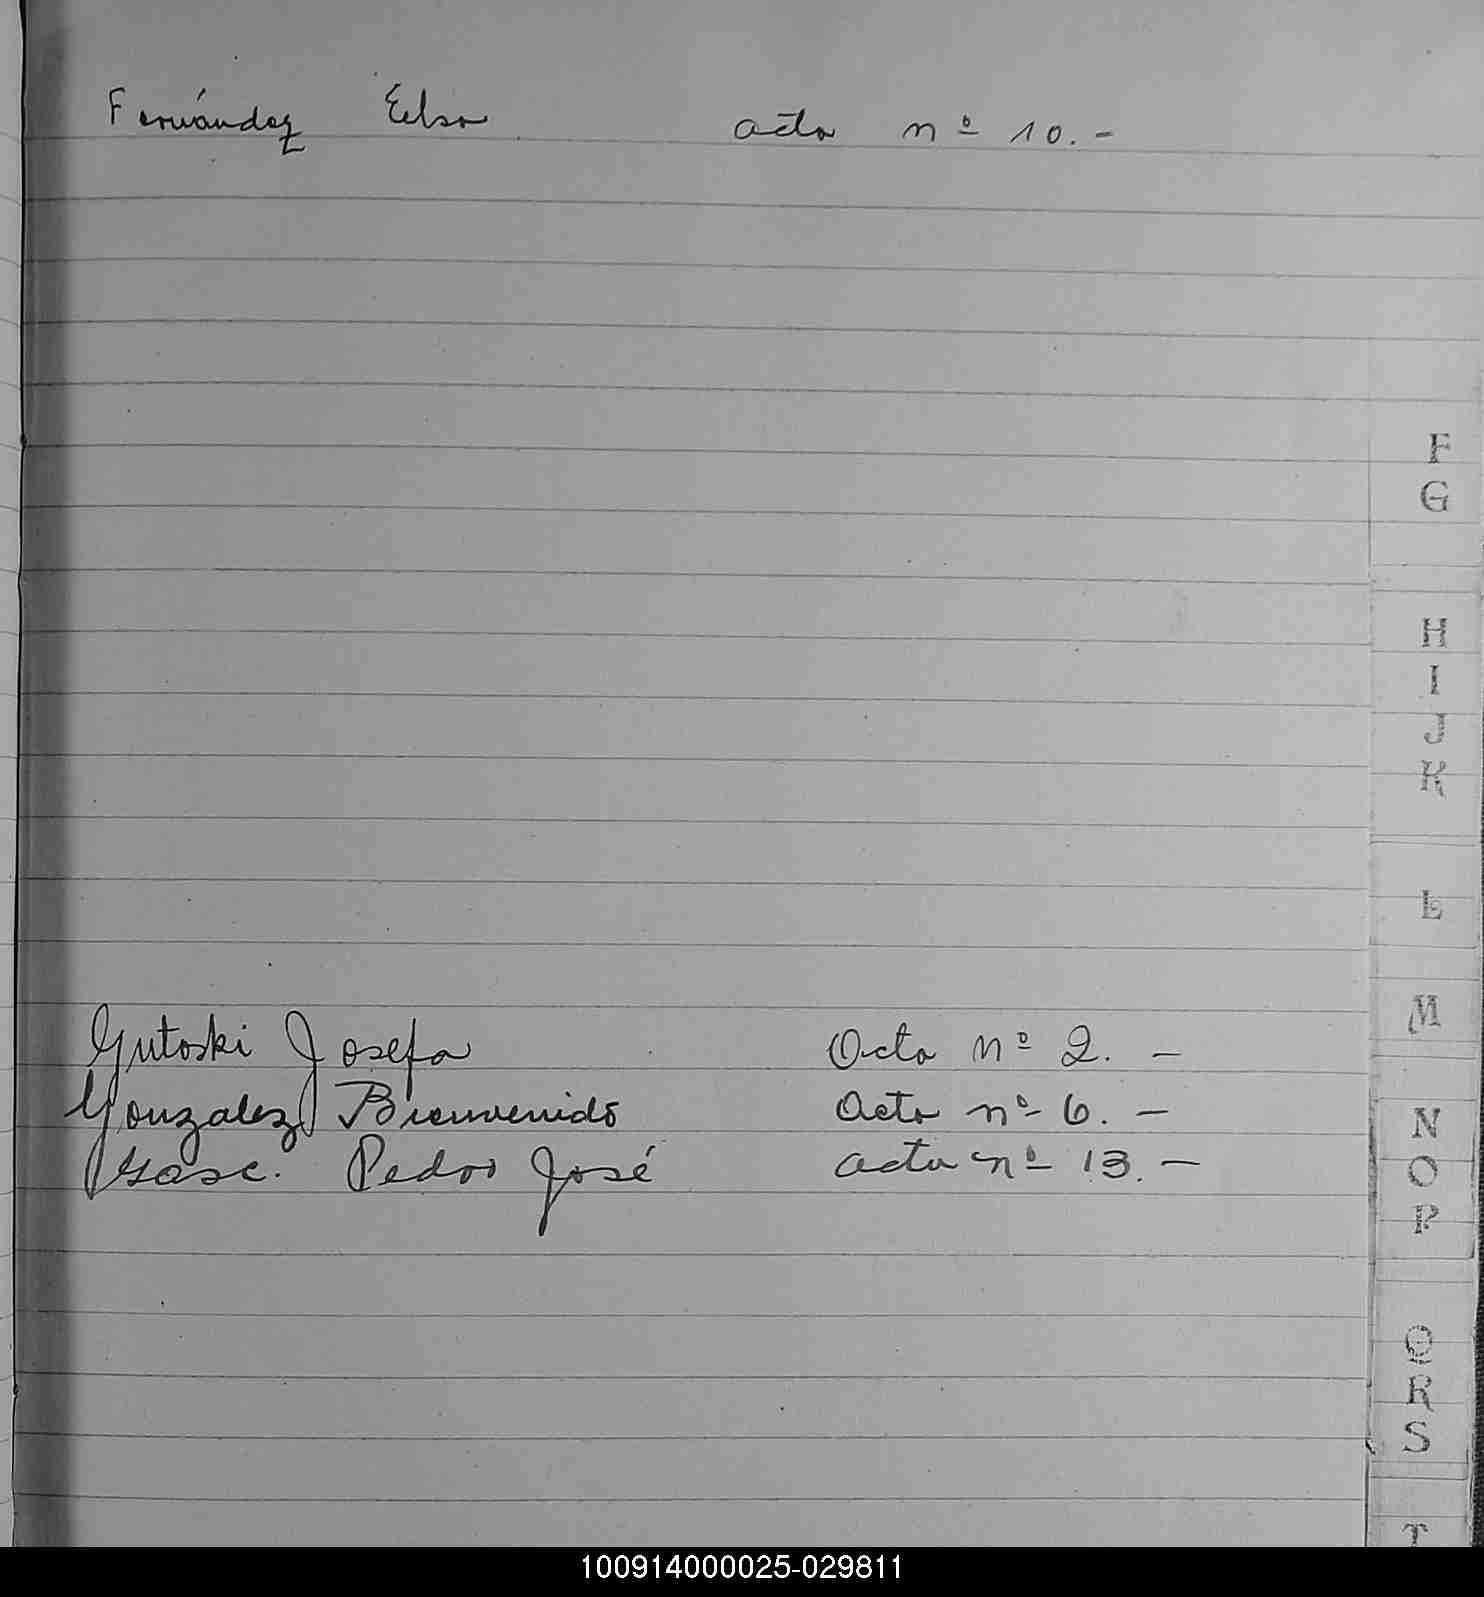 Fernández Elsa acta nº 10.-
F
G
H
I
J
K
L
M
Gutoski Josefa Acta nº 2. -
Gonzalez Bienvenido Acta nº 6. -
N
Gasc. Pedro José acta nº 13. -
O
P
Q
R
S
T
100914000025-029811